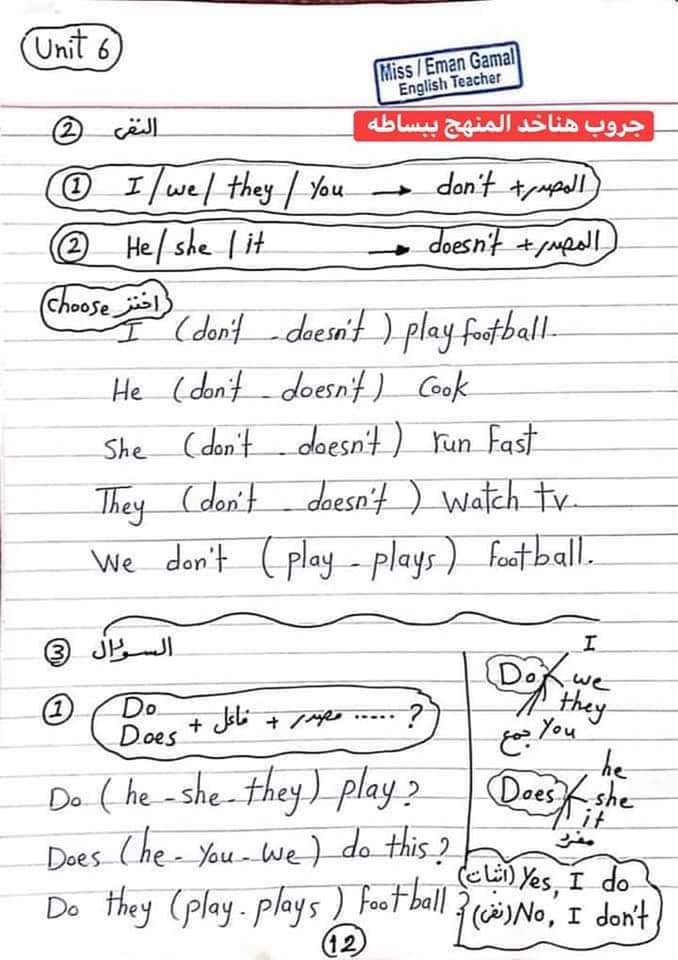 Unit 6
Miss / Eman Gamal
English Teacher
جروب هناخد المنهج ببساطه
② النفى
① I / we / they / you → don't + المصدر
② He / she / it → doesn't + المصدر
Choose اختر
I (don't - doesn't) play football.
He (don't - doesn't) Cook
She (don't - doesn't) run fast
They (don't - doesn't) watch tv.
We don't (play - plays) football.
③ السؤال
① Do
Does + فاعل + مصدر ..... ?
Do (he - she - they) play?
Does (he - you - we) do this?
Do they (play - plays) football?
Do I
we
they
you
جمع
Does he
she
it
مفرد
(اثبات) Yes, I do
(نفى) No, I don't
12